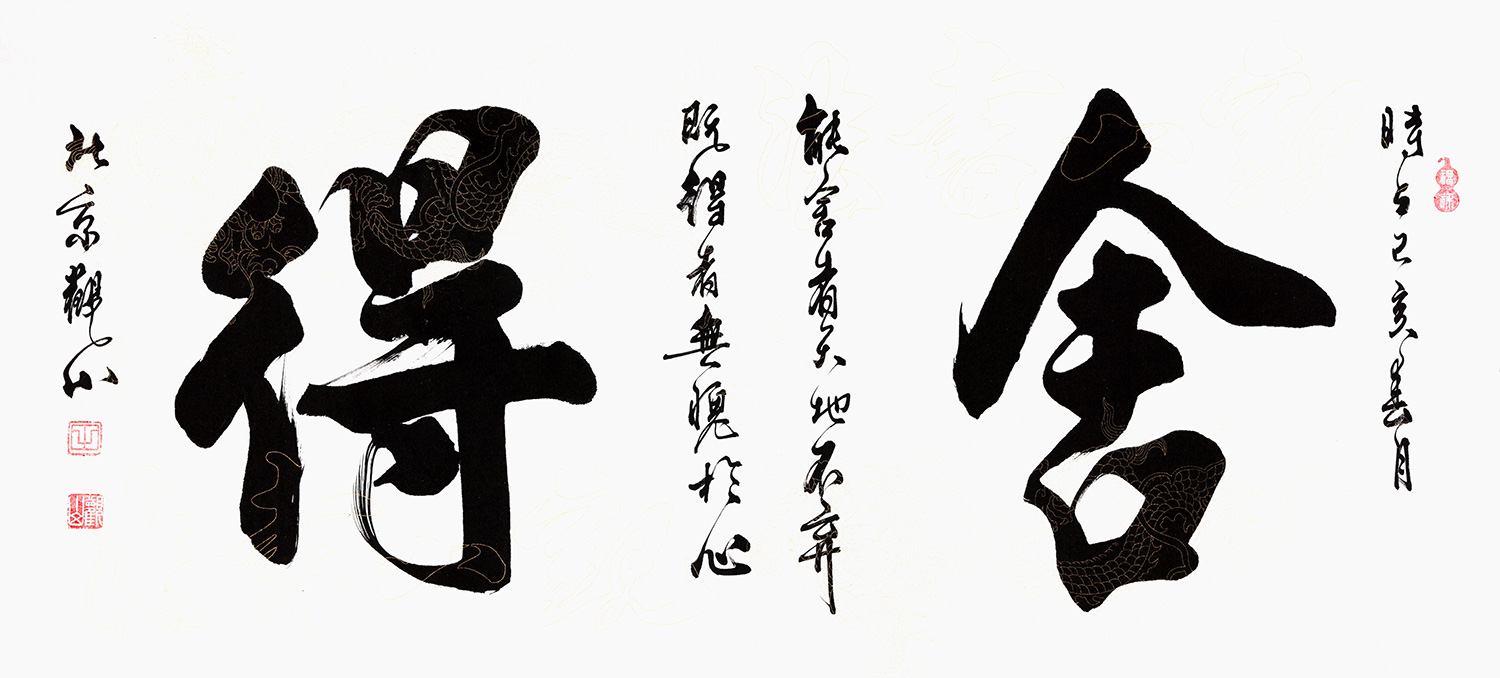 時与己亥春月
舍
能舍者天地不弃
既得者無愧於心
得
北京觀山
觀山